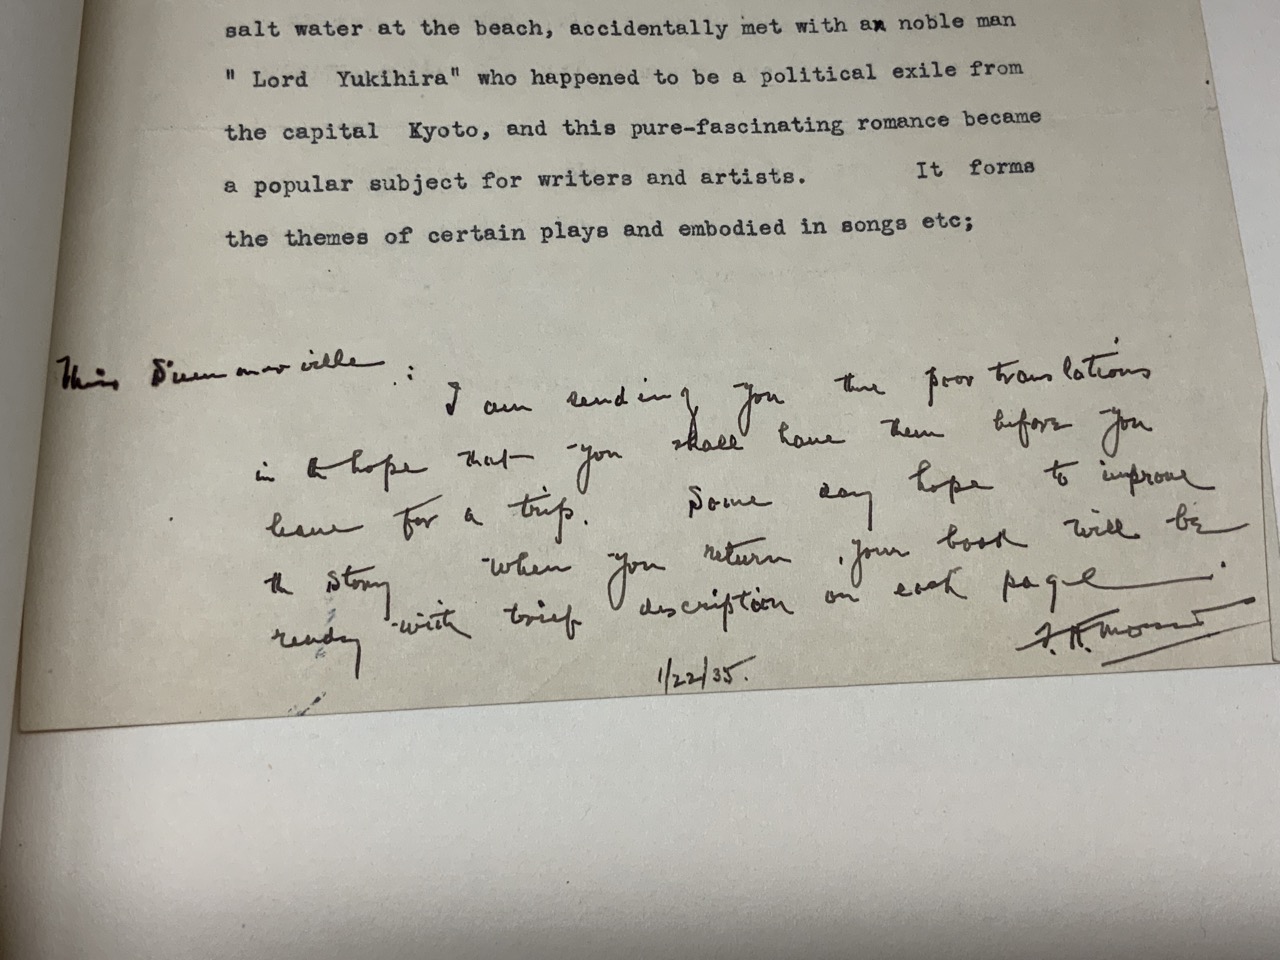 salt water at the beach, accidentally met with an noble man
" Lord Yukihira" who happened to be a political exile from
the capital Kyoto, and this pure-fascinating romance became
a popular subject for writers and artists. It forms
the themes of certain plays and embodied in songs etc;
Miss Summerville :
I am sending you the poor translations
in hope that you shall have them before you
leave for a trip. Some day hope to improve
th story when you return, your book will be
ready with brief description on each page.
1/22/35.